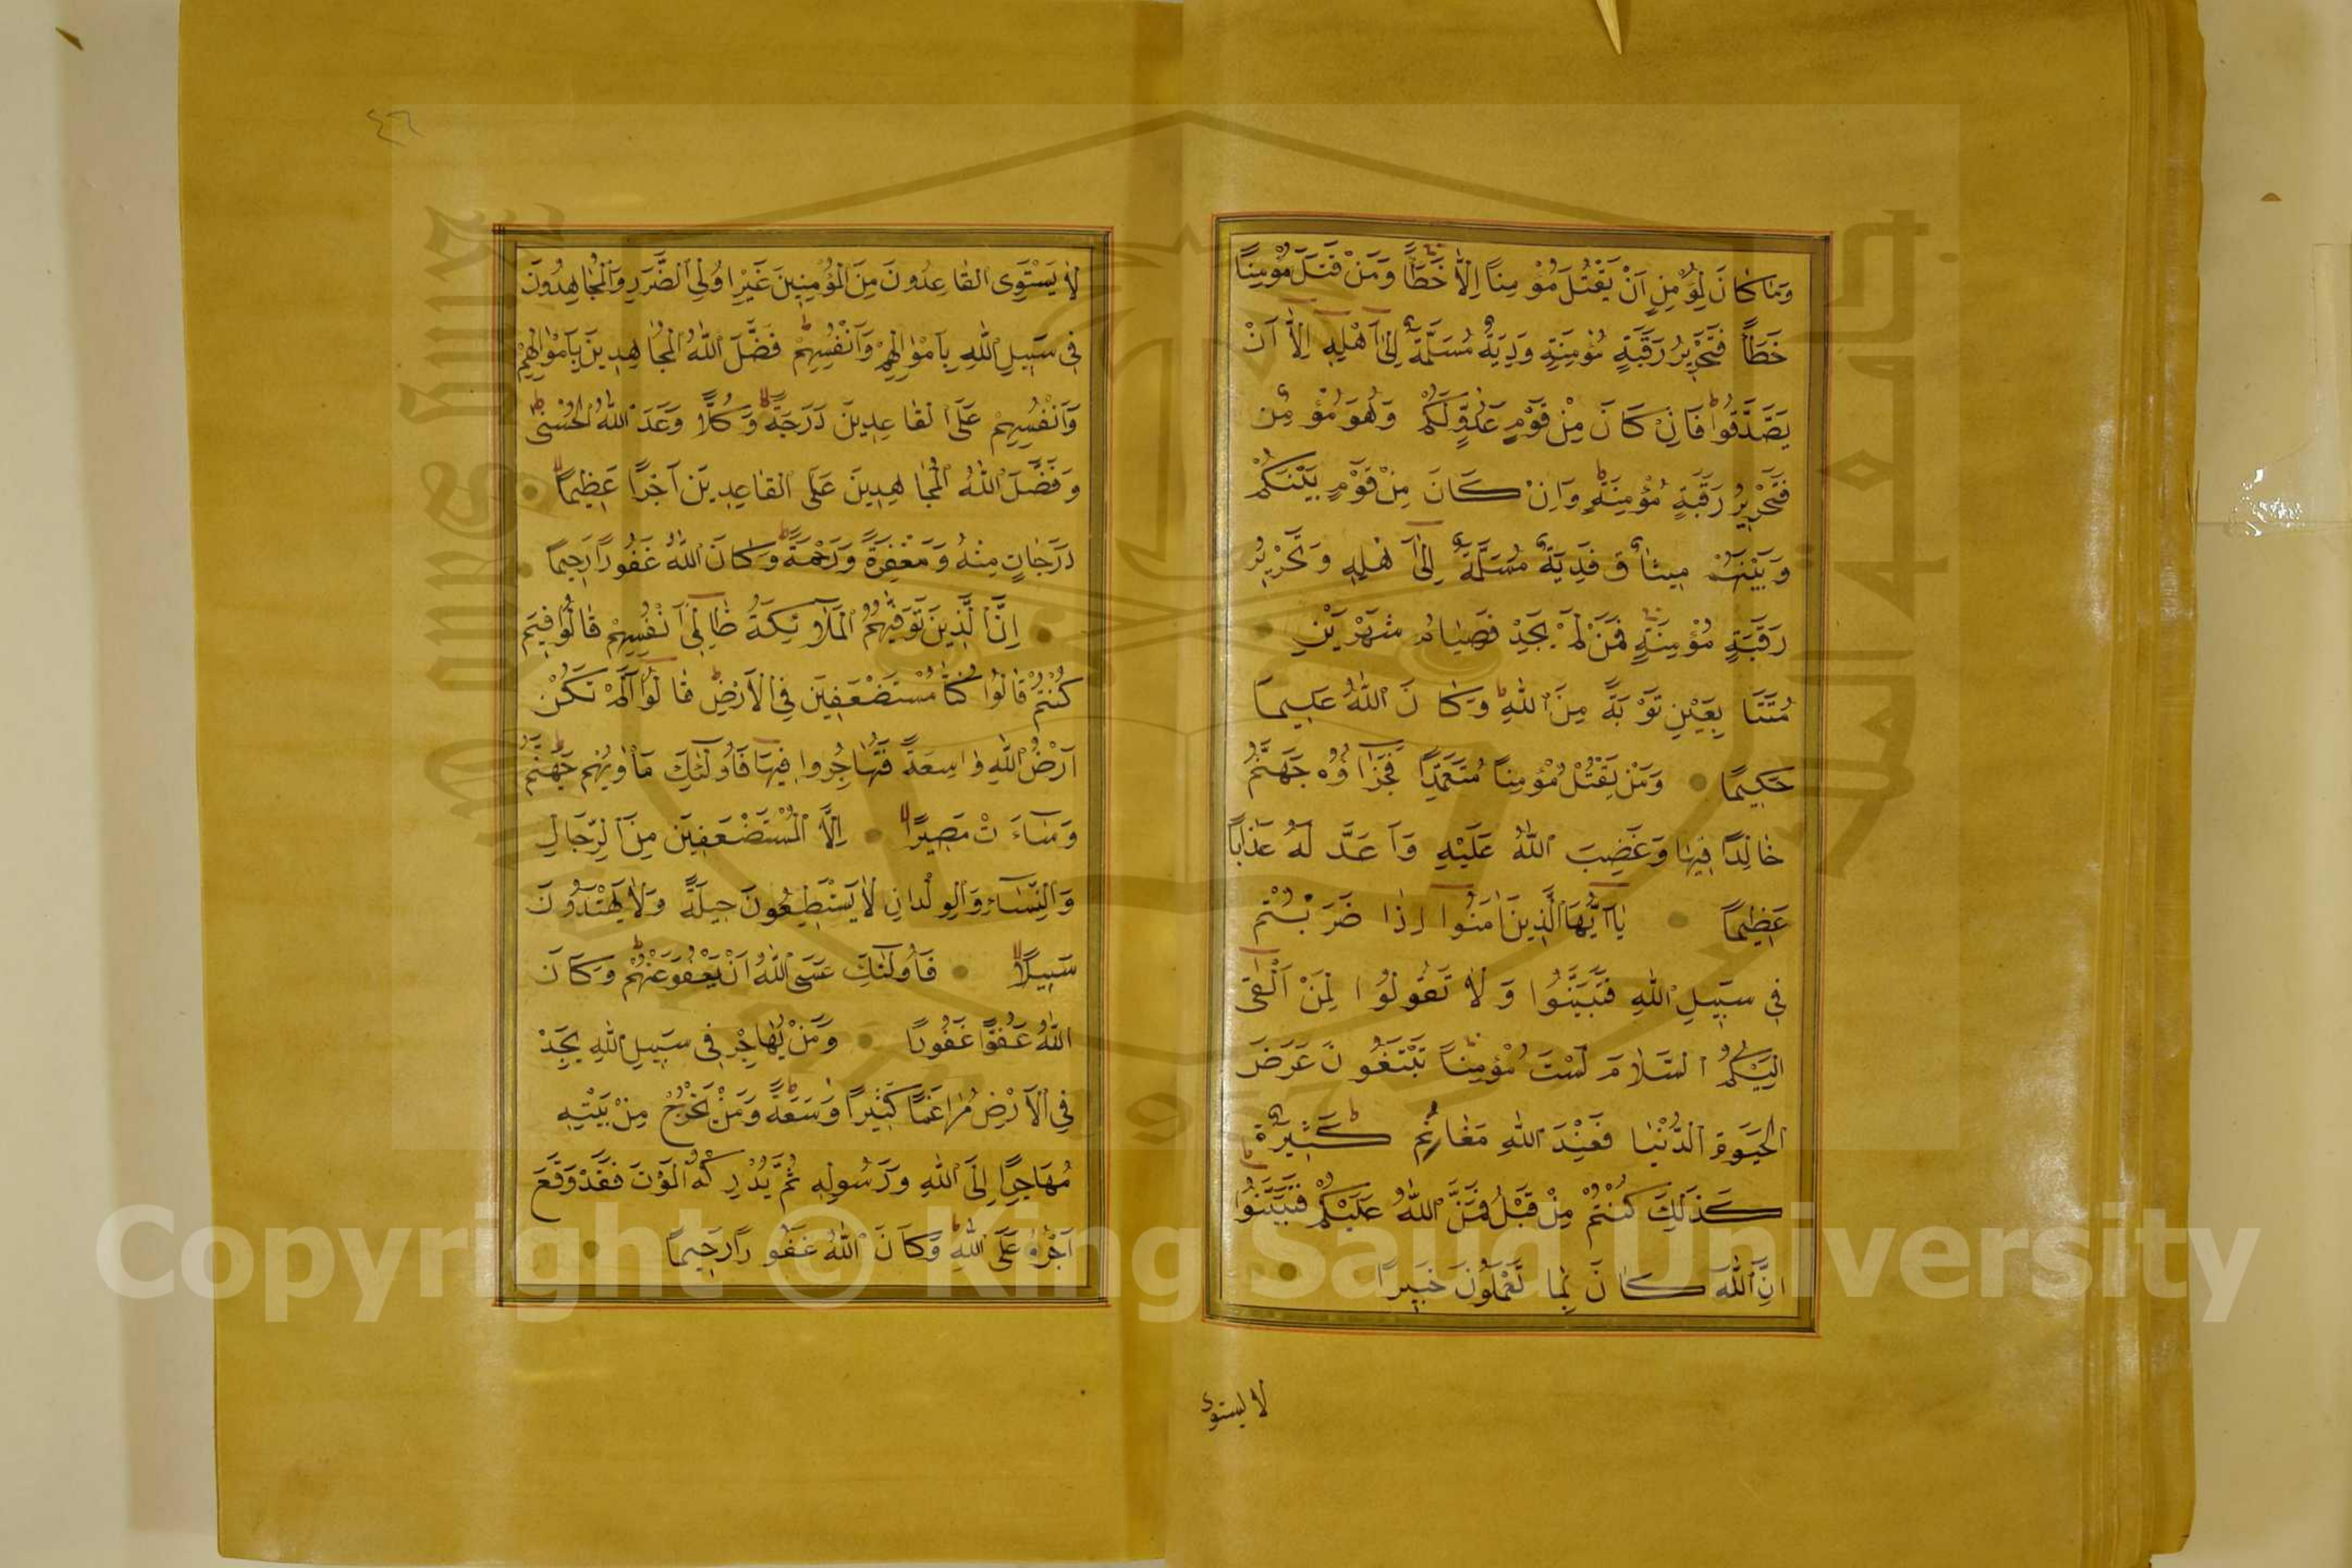 وَمَا كَانَ لِمُؤْمِنٍ اَنْ يَقْتُلَ مُؤْمِنًا اِلَّا خَطَأً وَمَنْ قَتَلَ مُؤْمِنًا
خَطَأً فَتَحْرِيرُ رَقَبَةٍ مُؤْمِنَةٍ وَدِيَةٌ مُسَلَّمَةٌ اِلٰى اَهْلِهِ اِلَّا اَنْ
يَصَّدَّقُوا فَاِنْ كَانَ مِنْ قَوْمٍ عَدُوٍّ لَكُمْ وَهُوَ مُؤْمِنٌ
فَتَحْرِيرُ رَقَبَةٍ مُؤْمِنَةٍ وَاِنْ كَانَ مِنْ قَوْمٍ بَيْنَكُمْ
وَبَيْنَهُمْ مِيثَاقٌ فَدِيَةٌ مُسَلَّمَةٌ اِلٰى اَهْلِهِ وَتَحْرِيرُ
رَقَبَةٍ مُؤْمِنَةٍ فَمَنْ لَمْ يَجِدْ فَصِيَامُ شَهْرَيْنِ
مُتَتَا بِعَيْنِ تَوْبَةً مِنَ اللّٰهِ وَكَانَ اللّٰهُ عَلِيمًا
حَكِيمًا وَمَنْ يَقْتُلْ مُؤْمِنًا مُتَعَمِّدًا فَجَزَاؤُهُ جَهَنَّمُ
خَالِدًا فِيهَا وَغَضِبَ اللّٰهُ عَلَيْهِ وَاَعَدَّ لَهُ عَذَابًا
عَظِيمًا يَا اَيُّهَا الَّذِينَ اٰمَنُوا اِذَا ضَرَبْتُمْ
فِي سَبِيلِ اللّٰهِ فَتَبَيَّنُوا وَلَا تَقُولُوا لِمَنْ اَلْقٰى
اِلَيْكُمُ السَّلَامَ لَسْتَ مُؤْمِنًا تَبْتَغُونَ عَرَضَ
الْحَيٰوةِ الدُّنْيَا فَعِنْدَ اللّٰهِ مَغَانِمُ كَثِيرَةٌ
كَذٰلِكَ كُنْتُمْ مِنْ قَبْلُ فَمَنَّ اللّٰهُ عَلَيْكُمْ فَتَبَيَّنُوا
اِنَّ اللّٰهَ كَانَ بِمَا تَعْمَلُونَ خَبِيرًا
لا يستوى
٤٦
لَا يَسْتَوِى الْقَاعِدُونَ مِنَ الْمُؤْمِنِينَ غَيْرُ اُولِي الضَّرَرِ وَالْمُجَاهِدُونَ
فِي سَبِيلِ اللّٰهِ بِاَمْوَالِهِمْ وَاَنْفُسِهِمْ فَضَّلَ اللّٰهُ الْمُجَاهِدِينَ بِاَمْوَالِهِمْ
وَاَنْفُسِهِمْ عَلَى الْقَاعِدِينَ دَرَجَةً وَكُلًّا وَعَدَ اللّٰهُ الْحُسْنٰى
وَفَضَّلَ اللّٰهُ الْمُجَاهِدِينَ عَلَى الْقَاعِدِينَ اَجْرًا عَظِيمًا
دَرَجَاتٍ مِنْهُ وَمَغْفِرَةً وَرَحْمَةً وَكَانَ اللّٰهُ غَفُورًا رَحِيمًا
اِنَّ الَّذِينَ تَوَفّٰيهُمُ الْمَلَائِكَةُ ظَالِمِي اَنْفُسِهِمْ قَالُوا فِيمَ
كُنْتُمْ قَالُوا كُنَّا مُسْتَضْعَفِينَ فِي الْاَرْضِ قَالُوا اَلَمْ تَكُنْ
اَرْضُ اللّٰهِ وَاسِعَةً فَتُهَاجِرُوا فِيهَا فَاُولٰئِكَ مَاْوٰيهُمْ جَهَنَّمُ
وَسَاءَتْ مَصِيرًا اِلَّا الْمُسْتَضْعَفِينَ مِنَ الرِّجَالِ
وَالنِّسَاءِ وَالْوِلْدَانِ لَا يَسْتَطِيعُونَ حِيلَةً وَلَا يَهْتَدُونَ
سَبِيلًا فَاُولٰئِكَ عَسَى اللّٰهُ اَنْ يَعْفُوَ عَنْهُمْ وَكَانَ
اللّٰهُ عَفُوًّا غَفُورًا وَمَنْ يُهَاجِرْ فِي سَبِيلِ اللّٰهِ يَجِدْ
فِي الْاَرْضِ مُرَاغَمًا كَثِيرًا وَسَعَةً وَمَنْ يَخْرُجْ مِنْ بَيْتِهِ
مُهَاجِرًا اِلَى اللّٰهِ وَرَسُولِهِ ثُمَّ يُدْرِكْهُ الْمَوْتُ فَقَدْ وَقَعَ
اَجْرُهُ عَلَى اللّٰهِ وَكَانَ اللّٰهُ غَفُورًا رَحِيمًا
Copyright © King Saud University